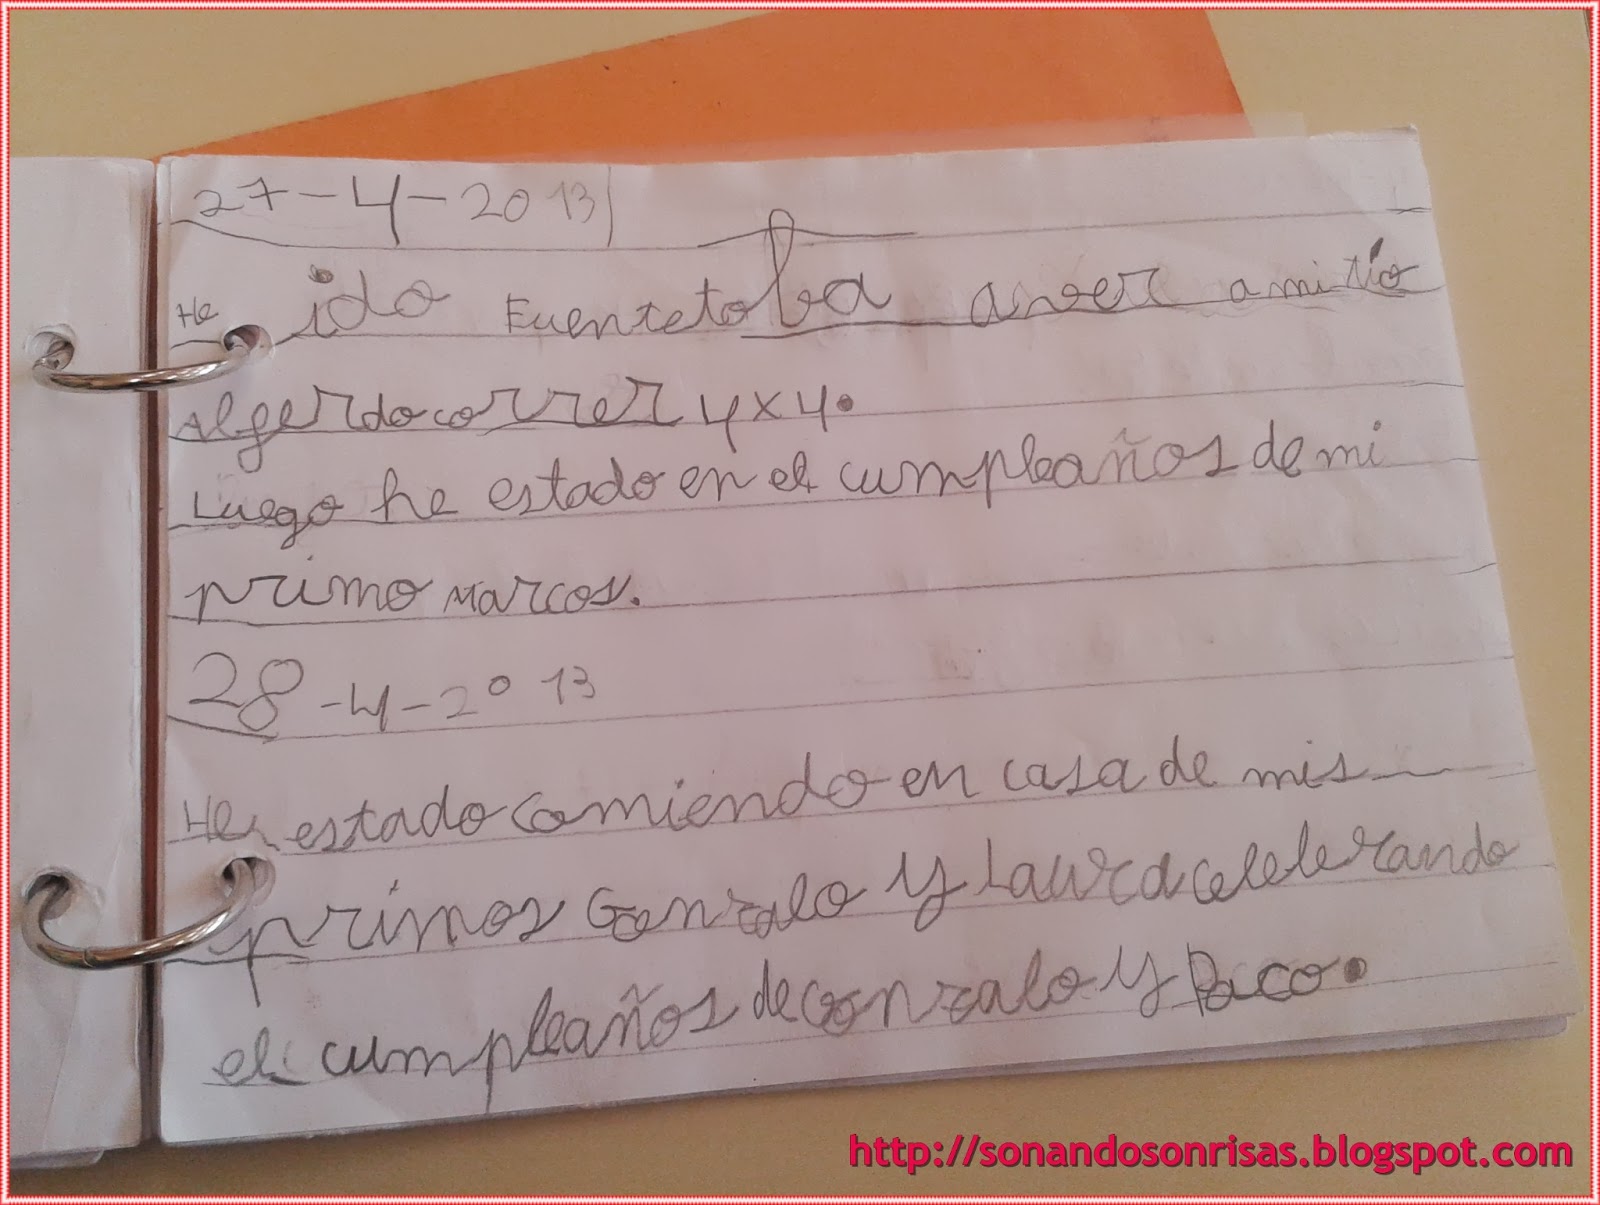 27-4-2013
He ido Fuentetoba aver a mi tío
Algerdo correr 4x4.
Luego he estado en el cumpleaños de mi
primo Marcos.
28-4-2013
He estado comiendo en casa de mis
primos Gonzalo y Laura celelerando
el cumpleaños de Gonzalo y Paco.
http://sonandosonrisas.blogspot.com